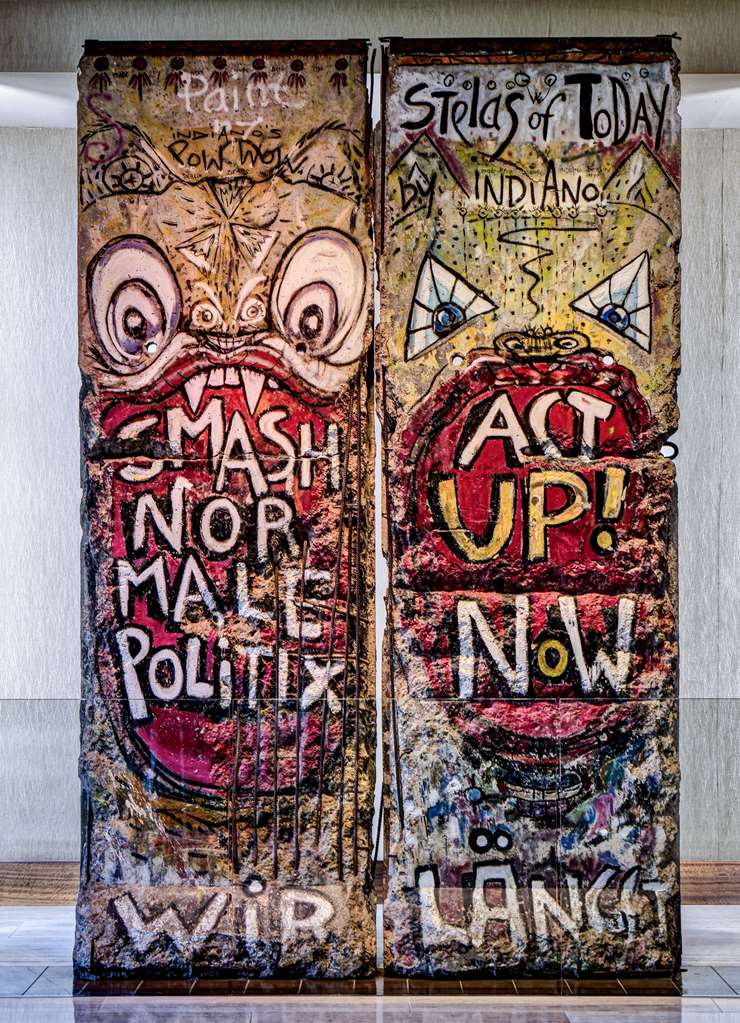 Paint
INDIANO'S
POW WOW
SMASH
NOR
MALE
POLiTiX
WiR
STELAS of TODAY
by INDIANO
ACT
UP!
NoW
LÄNGST